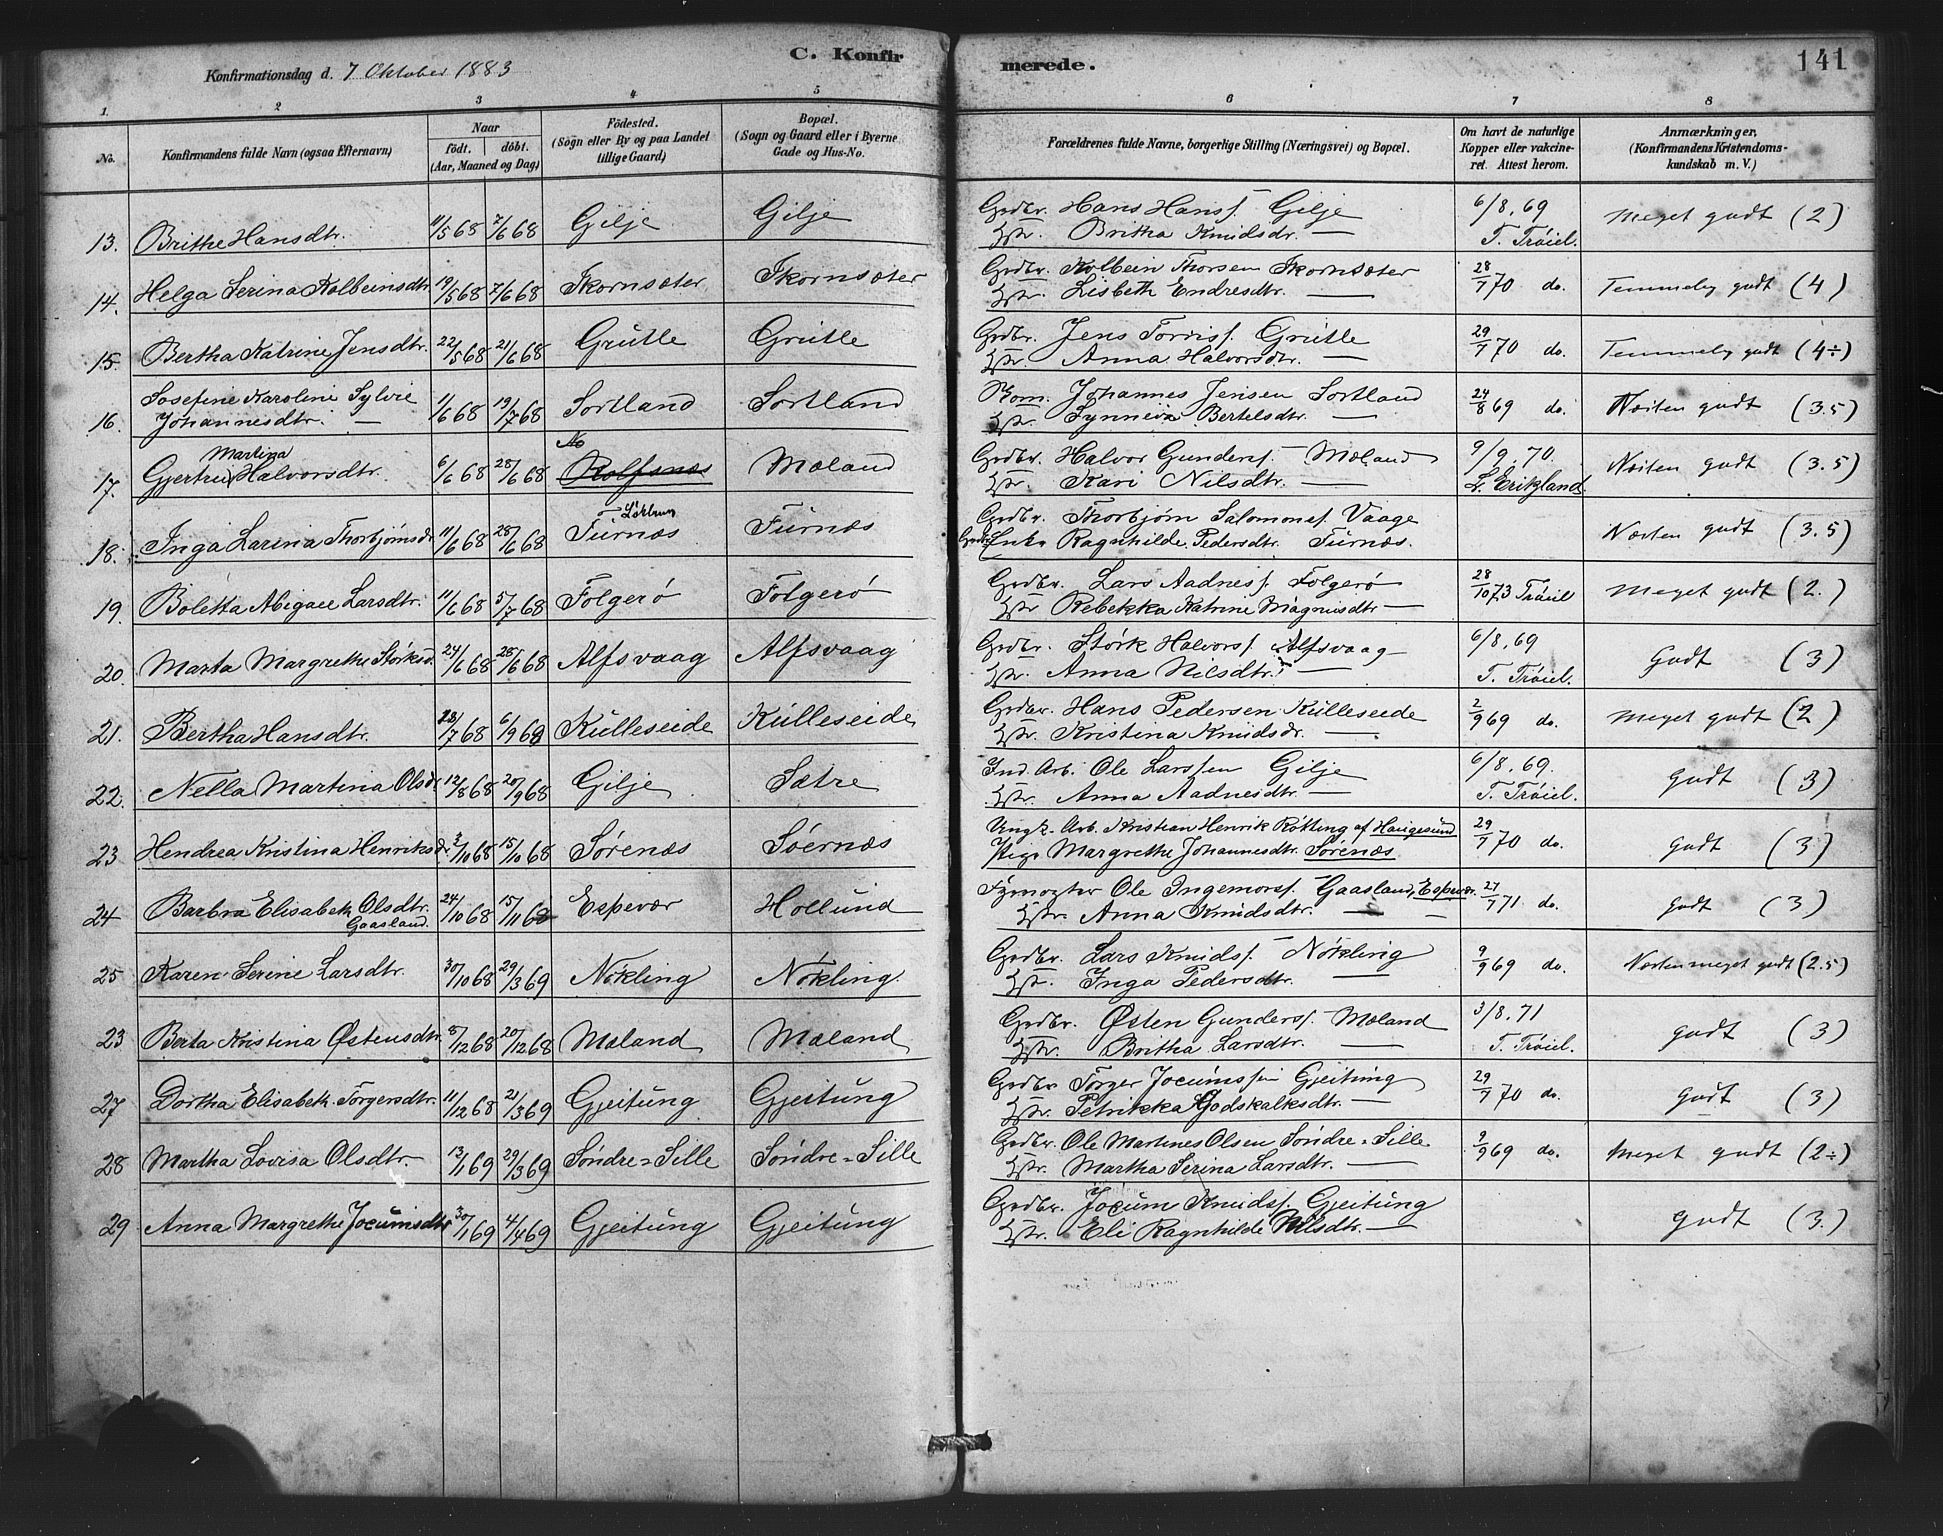 C. Konfirmerede.
141
Konfirmationsdag d. 7 Oktober 1883
1. 2 3 4 5 6 7 8
No. Konfirmandens fulde Navn (ogsaa Efternavn) Naar födt. döbt. (Aar, Maaned og Dag) Födested. (Sogn eller By og paa Landet tillige Gaard) Bopæl. (Sogn og Gaard eller i Byerne Gade og Hus-No. Forældrenes fulde Navne, borgerlige Stilling (Næringsvei) og Bopæl. Om havt de naturlige Kopper eller vakcineret. Attest herom. Anmærkninger, (Konfirmandens Kristendomskundskab m. V.)
13. Brithe Hansdtr. 11/5 68 7/6 68 Gilje Gilje Grdbr. Hans Hanss. Gilje 6/8. 69 Meget godt (2)
Hstr. Britha Knudsdr. — T. Tröiel.
14. Helga Serina Kolbeinsdtr 19/5 68 7/6 68 Skornsæter Skornsæter Grdbr. Kolbein Thorsen Skornsæter 28/7 70 do. Temmelig godt (4)
Hstr. Lisbeth Endresdtr. —
15. Bertha Katrine Jensdtr. 22/5 68 21/6 68 Grutle Grutle Grdbr. Jens Torriss. Grutle 29/7 70 do. Temmelig godt (4÷)
Hstr. Anna Halvorsdtr. —
16. Josefine Karoline Sylvie 11/6 68 19/7 68 Sortland Sortland Johannes Jensen Sortland 24/8 69 do. Næsten godt (3.5)
Johannesdtr. — Hstr. Synneva Bertelsdtr. —
Martina No
17. Gjertru Halvorsdtr. 6/6 68 28/6 68 Rolfsnæs Mæland Grdbr. Halvor Gunders. Mæland 9/9. 70. Næsten godt (3.5)
Hstr. Kari Nilsdtr. — L. Erikland
18. Inga Larina Thorbjörnsd. 11/6 68 28/6 68 Furnæs Furnæs Grdbr. Thorbjörn Salomons. Vaage Næsten godt (3.5)
Enke Ragnhilde Pedersdtr. Furnæs.
19. Boletta Abigael Larsdtr. 11/6 68 5/7 68 Folgerö Folgerö Grdbr. Lars Aadness. Folgerö 28/10 73 Tröiel Meget godt (2.)
Hstr Rebekka Katrine Magnusdtr —
20. Marta Margrethe Störksd. 24/6 68 28/6 68 Alfsvaag Alfsvaag Grdbr. Störk Halvors. Alfsvaag 6/8. 69 Godt (3)
Hstr. Anna Nilsdtr. — T. Tröiel.
21. Bertha Hansdtr. 28/7 68 6/9 68 Kulleseide Kulleseide Grdbr. Hans Pedersen Kulleseide 2/9 69 do. Meget godt (2)
Hstr. Kristina Knudsdr. —
22. Nella Martina Olsd. 12/8 68 20/9 68 Gilje Sætre Ind. Arb. Ole Larssen Gilje 6/8. 69. Godt (3)
Hstr. Anna Aadnesdtr. — T. Tröiel.
23. Hendrea Kristina Henriksdr. 2/10 68 15/10 68 Sörenæs Söernæs Ungk. Arb. Kristian Henrik Rötting af Haugesund 29/7 70 do. Godt (3)
Pige Margrethe Johannesdtr. Sörenæs
24 Barbra Elisabeth Olsdtr. 24/10 68 15/11 68 Espevær Hollund Ole Ingemors. Gaasland, Espevær. 27/7 71 do. Godt (3)
Gaasland. Hstr. Anna Knudsdtr. — —
25 Karen Serine Larsdtr. 30/10 68 29/3 69 Nökling Nökling. Grdbr. Lars Knuds. Nökling 9/9 69 do. Næsten meget godt (2.5)
Hstr. Inga Pedersdtr. —
23 Berta Kristina Østensdtr. 8/12 68 20/12 68 Mæland Mæland Grdbr. Østen Gunders. Mæland 3/8. 71 Godt (3)
Hstr. Britha Larsdtr. — T. Tröiel.
27 Dortha Elisabeth Torgersdtr. 11/12 68 21/3 69 Gjeitung Gjeitung Grdbr Torger Jocumssen Gjeitung 29/7 70 do. Godt (3)
Hstr. Petrikka Godskalksdtr. —
28 Martha Lovisa Olsdtr. 13/1 69 29/3 69 Söndre=Sille Söndre=Sille Grdbr. Ole Martines Olsen Söndre=Sille 9/9 69 do. Meget godt (2÷)
Hstr. Martha Serina Larsdtr. —
29 Anna Margrethe Jocumsdtr 30/1 69 4/4 69 Gjeitung Gjeitung Grdbr. Jocum Knuds. Gjeitung Godt (3.)
Hstr. Eli Ragnhilde Nilsdtr. —